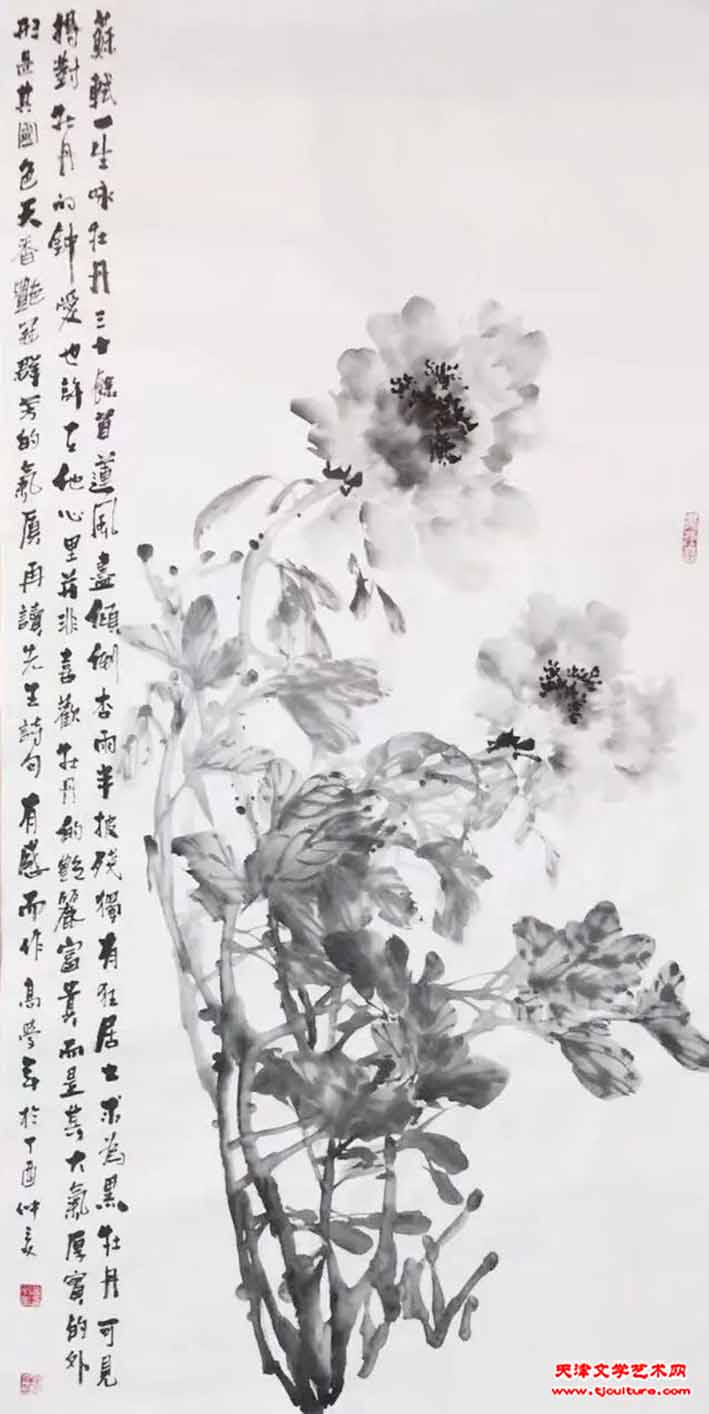 蘇軾一生咏牡丹三十餘首蓮風盡傾倒杏雨半披殘獨有狂居士求為黑牡丹可見
揚對牡丹的鈡愛也許在他心里并非喜歡牡丹的艷麗富貴而是其大氣厚實的外
形是其國色天香艷冠群芳的氣質再讀先生詩句有感而作高學年於丁酉仲夏
天津文学艺术网
www.tjculture.com